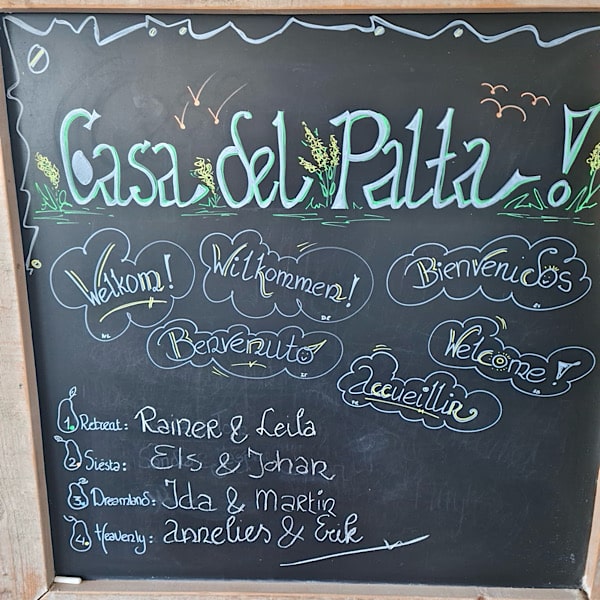 Casa del Palta!
Welkom! Willkommen! Bienvenidos
Benvenuto Welcome!
accueillir
1. Retreat: Rainer & Leila
2. Siësta: Els & Johan
3. Dreamland: Ida & Martin
4. Heavenly: annelies & Erik